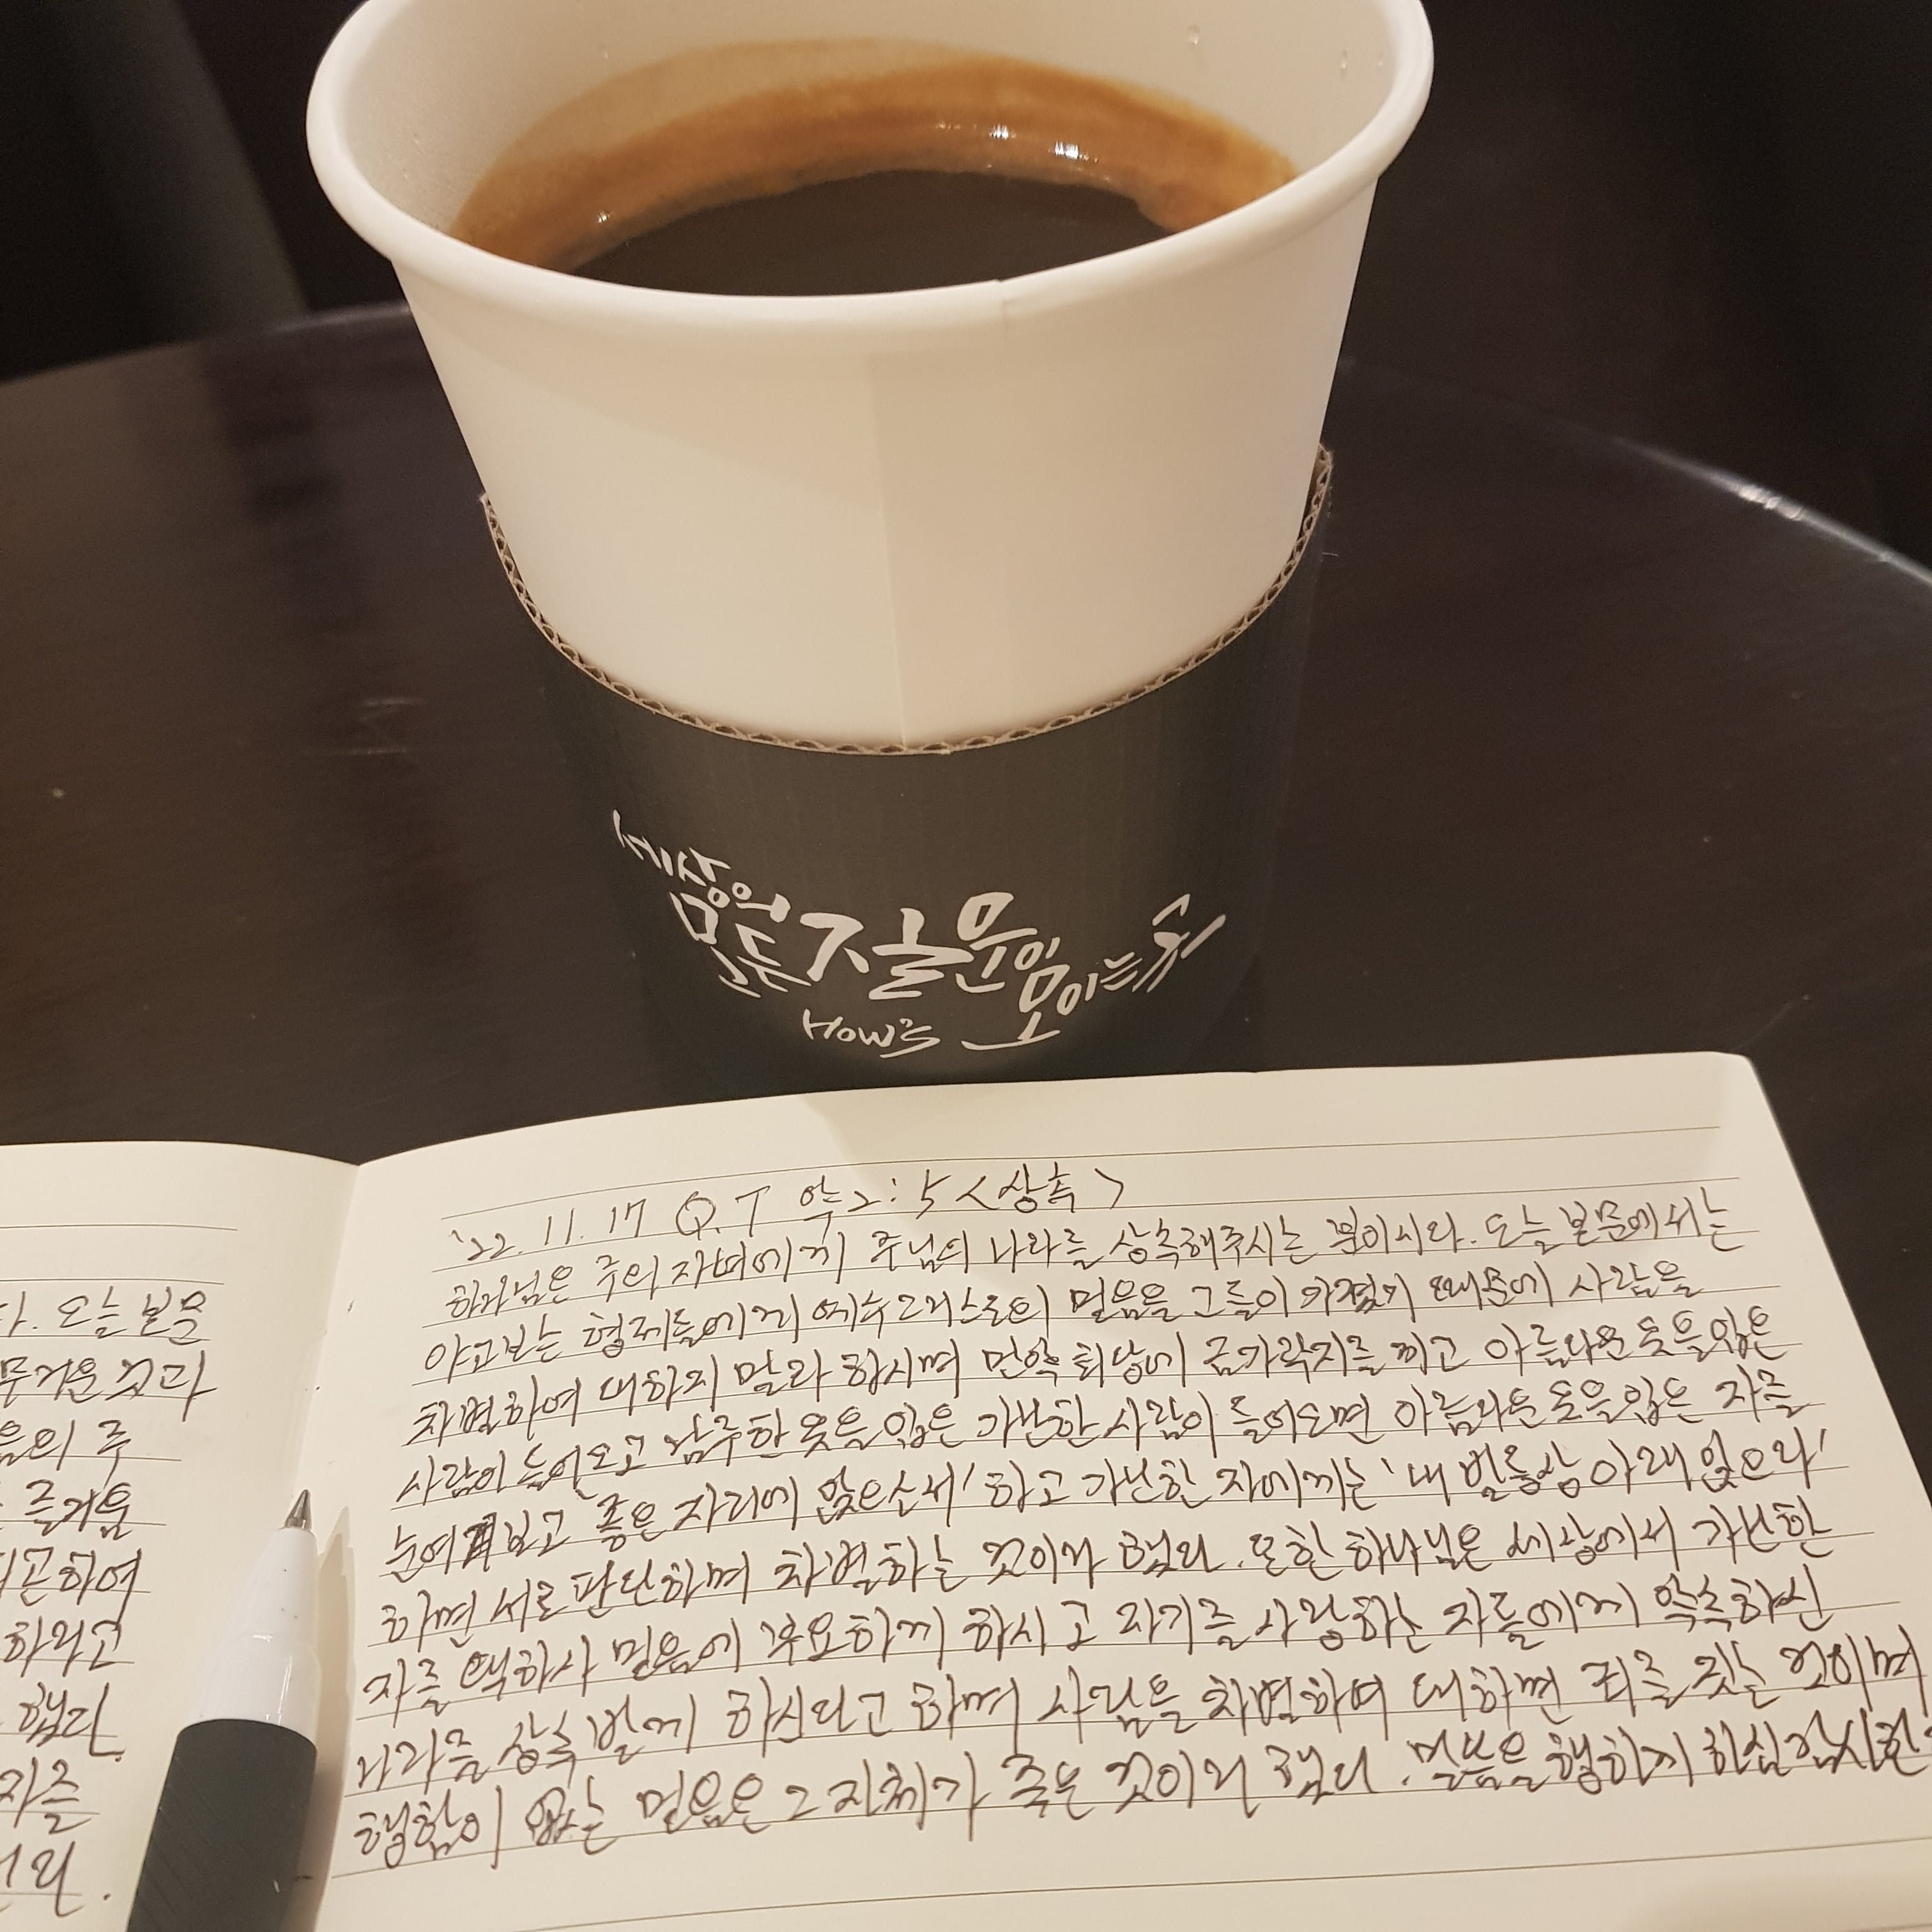 세상의
모든 질문이
모이는 곳
How's
'22. 11. 17 Q.T 약2:5 <상속>
하나님은 주의 자녀에게 주님의 나라를 상속해주시는 분이시다. 오늘 본문에서는
야고보는 형제들에게 예수그리스도의 믿음을 그들이 가졌기 때문에 사람을
차별하여 대하지 말라 하시며 만약 회당에 금가락지를 끼고 아름다운 옷을 입은
사람이 들어오고 남루한 옷을 입은 가난한 사람이 들어오면 아름다운 옷을 입은 자를
눈여겨보고 '좋은 자리에 앉으소서' 하고 가난한 자에게는 '내 발등상 아래 앉으라'
하면 서로 판단하며 차별하는 것이라 했다. 또한 하나님은 세상에서 가난한
자를 택하사 믿음에 부요하게 하시고 자기를 사랑하는 자들에게 약속하신
나라를 상속받게 하신다고 하며 사람을 차별하여 대하면 죄를 짓는 것이며
행함이 없는 믿음은 그 자체가 죽은 것이라 했다. 말씀을 행하게 하심 감사한
다. 오늘 본문
무거운 것과
음의 주
즐거움
하여
하라고
했다.
자를